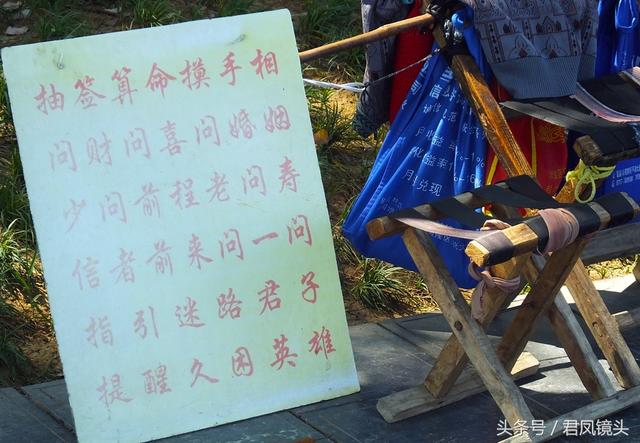 抽签算命摸手相
问财问喜问婚姻
少问前程老问寿
信者前来问一问
指引迷路君子
提醒久困英雄
月兑现
头条号 / 君凡镜头